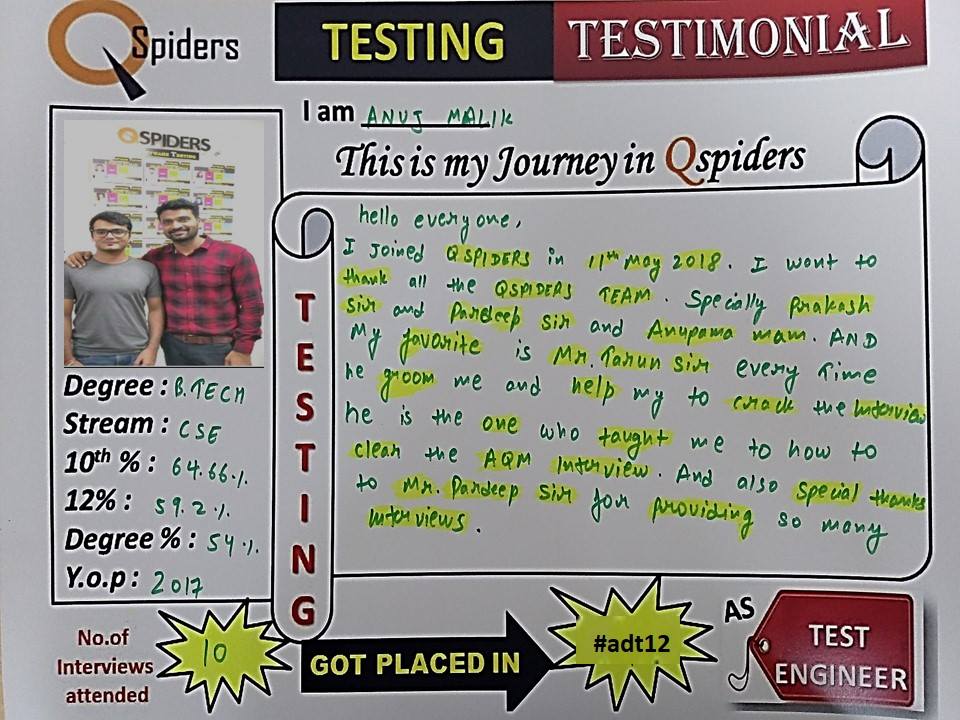 QSpiders
TESTING
TESTIMONIAL
I am ANUJ MALIK
This is my Journey in Qspiders
QSPIDERS
hello everyone,
I Joined QSPIDERS in 11th May 2018. I want to
thank all the QSPIDERS TEAM. Specially Prakash
Sir and Pardeep Sir and Anupama mam. AND
My favorite is Mr. Tarun Sir every Time
he groom me and help my to crack the Interview
he is the one who taught me to how to
clear the AQM Interview. And also special thanks
to Mr. Pardeep Sir for providing so many
Interviews.
TESTING
Degree : B.TECH
Stream : CSE
10th % : 64.66%
12% : 59.2%
Degree % : 54%
Y.o.p : 2017
No.of
Interviews
attended
10
GOT PLACED IN
#adt12
AS
TEST
ENGINEER